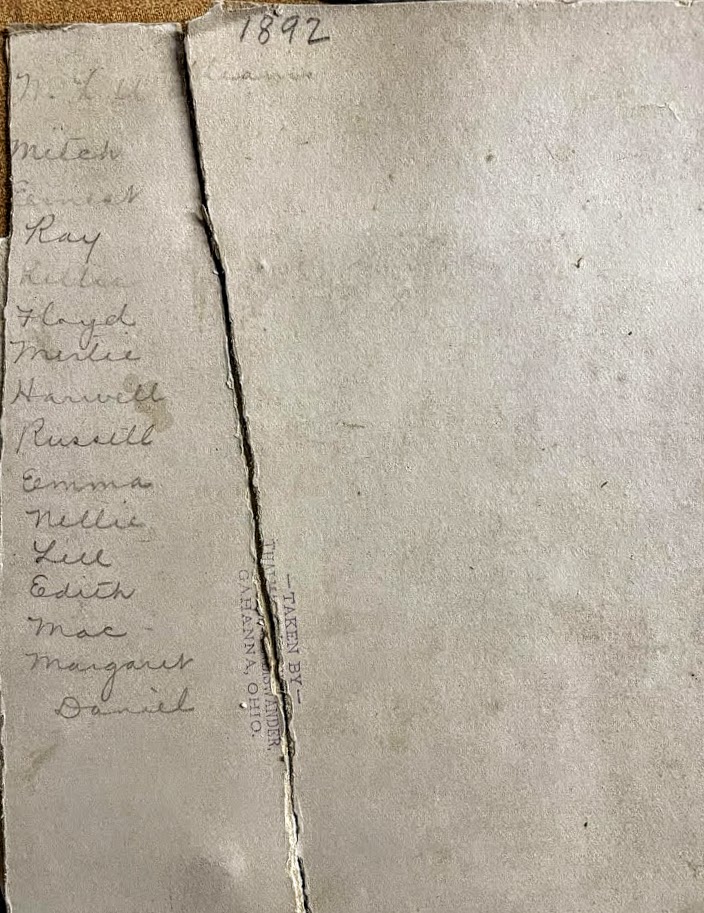 1892
Mitch
Ernest
Ray
Lillie
Floyd
Merlie
Harwell
Russell
Emma
Nellie
Lill
Edith
Mac -
Margaret
Daniel
—TAKEN BY—
GAHANNA, OHIO.